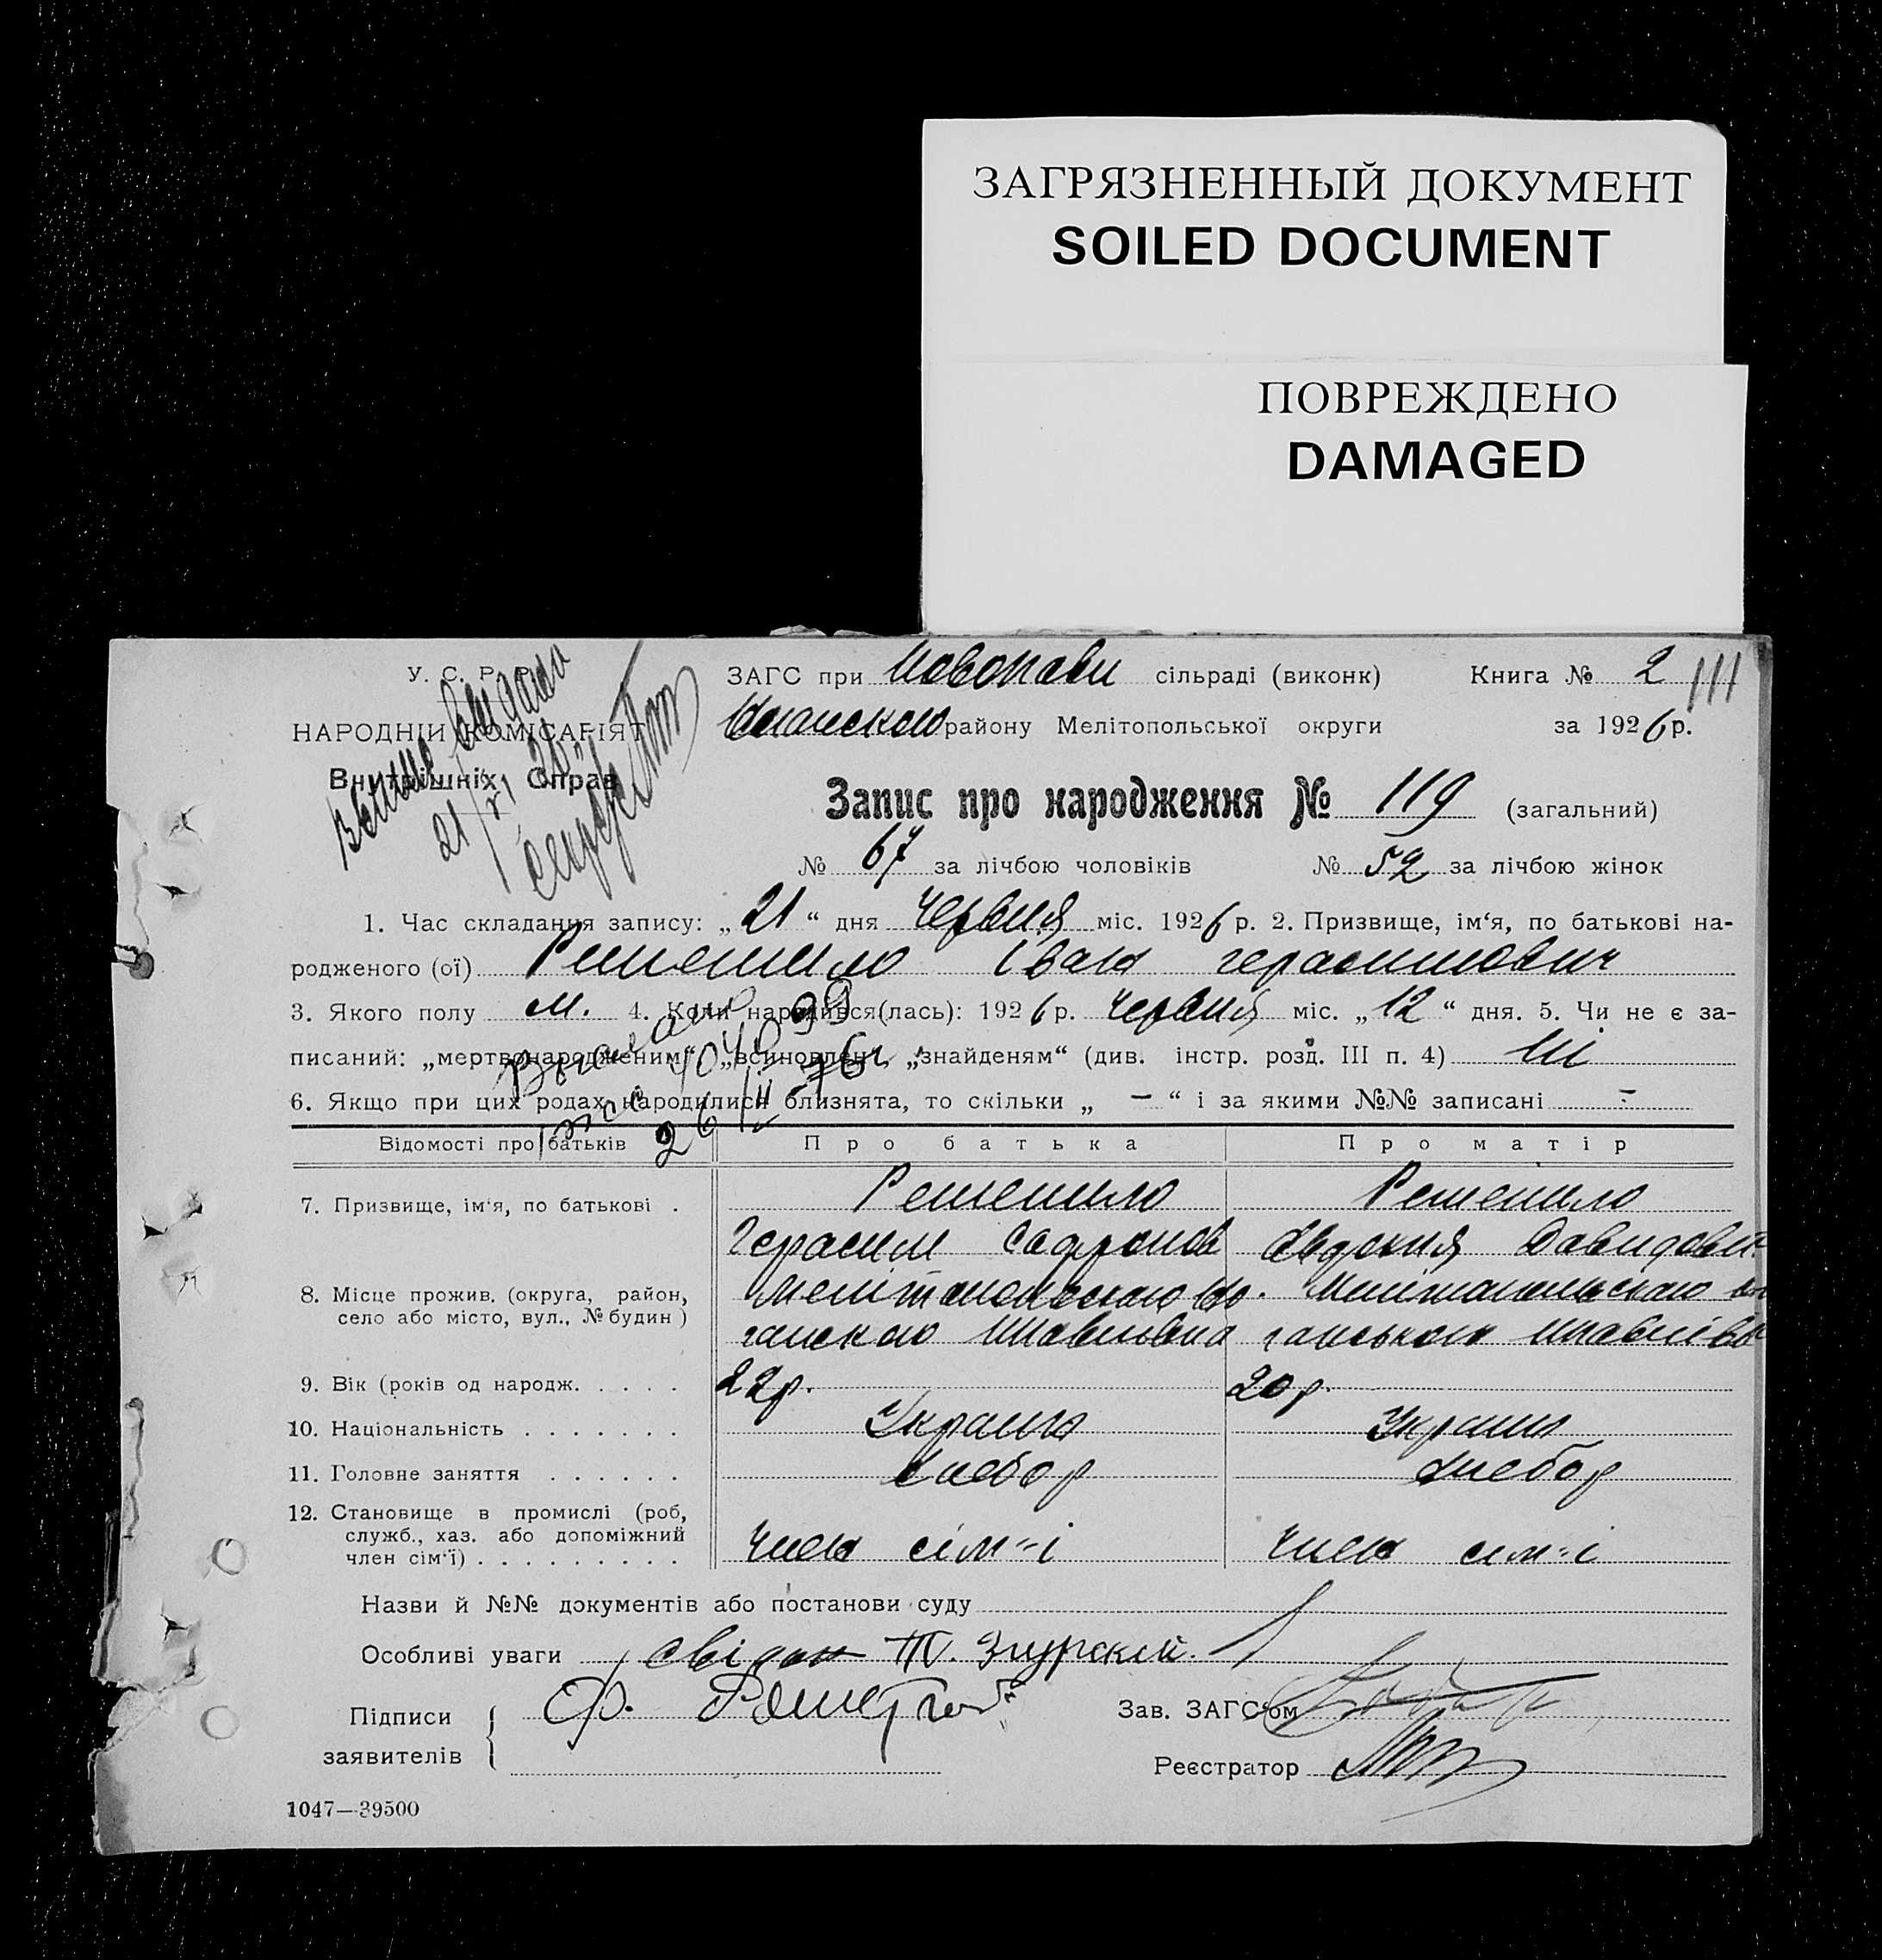 ЗАГРЯЗНЕННЫЙ ДОКУМЕНТ
SOILED DOCUMENT
ПОВРЕЖДЕНО
DAMAGED
У. С. Р. Р.
ЗАГС при Новопавл сільраді (виконк) Книга № 2 111
НАРОДНІЙ КОМІСАРІЯТ
району Мелітопольської округи за 1926 р.
Внутрішніх Справ
21/VI
Запис про народження № 119 (загальний)
№ 67 за лічбою чоловіків № 52 за лічбою жінок
1. Час складання запису: „21“ дня червня міс. 1926 р. 2. Призвище, ім‘я, по батькові на-
родженого (ої) Решетило Іван герасимович
3. Якого полу м. 4. Коли народився(лась): 1926 р. червня міс. „12“ дня. 5. Чи не є за-
писаний: „мертвонародженим“, „всиновлен“, „знайденям“ (див. інстр. розд. III п. 4) Ні
6. Якщо при цих родах народилися близнята, то скільки „ — “ і за якими №№ записані -
Відомості про батьків Про батька Про матір
7. Призвище, ім‘я, по батькові . Решетило Решетило
Герасим Сафронов Явдокия Давидов
8. Місце прожив. (округа, район,
село або місто, вул., № будин )
9. Вік (років од народж. . . . . 22р. 20р.
10. Національність . . . . . . . Україн Україн
11. Головне заняття . . . . . . Хлебор Хлебор
12. Становище в промислі (роб,
служб., хаз. або допоміжний
член сім‘ї) . . . . . . . . . Член сім"і Член сім"і
Назви й №№ документів або постанови суду
Особливі уваги свідок Т. Згурский.
Підписи
заявителів
Зав. ЗАГС‘ом
Реєстратор
1047—39500